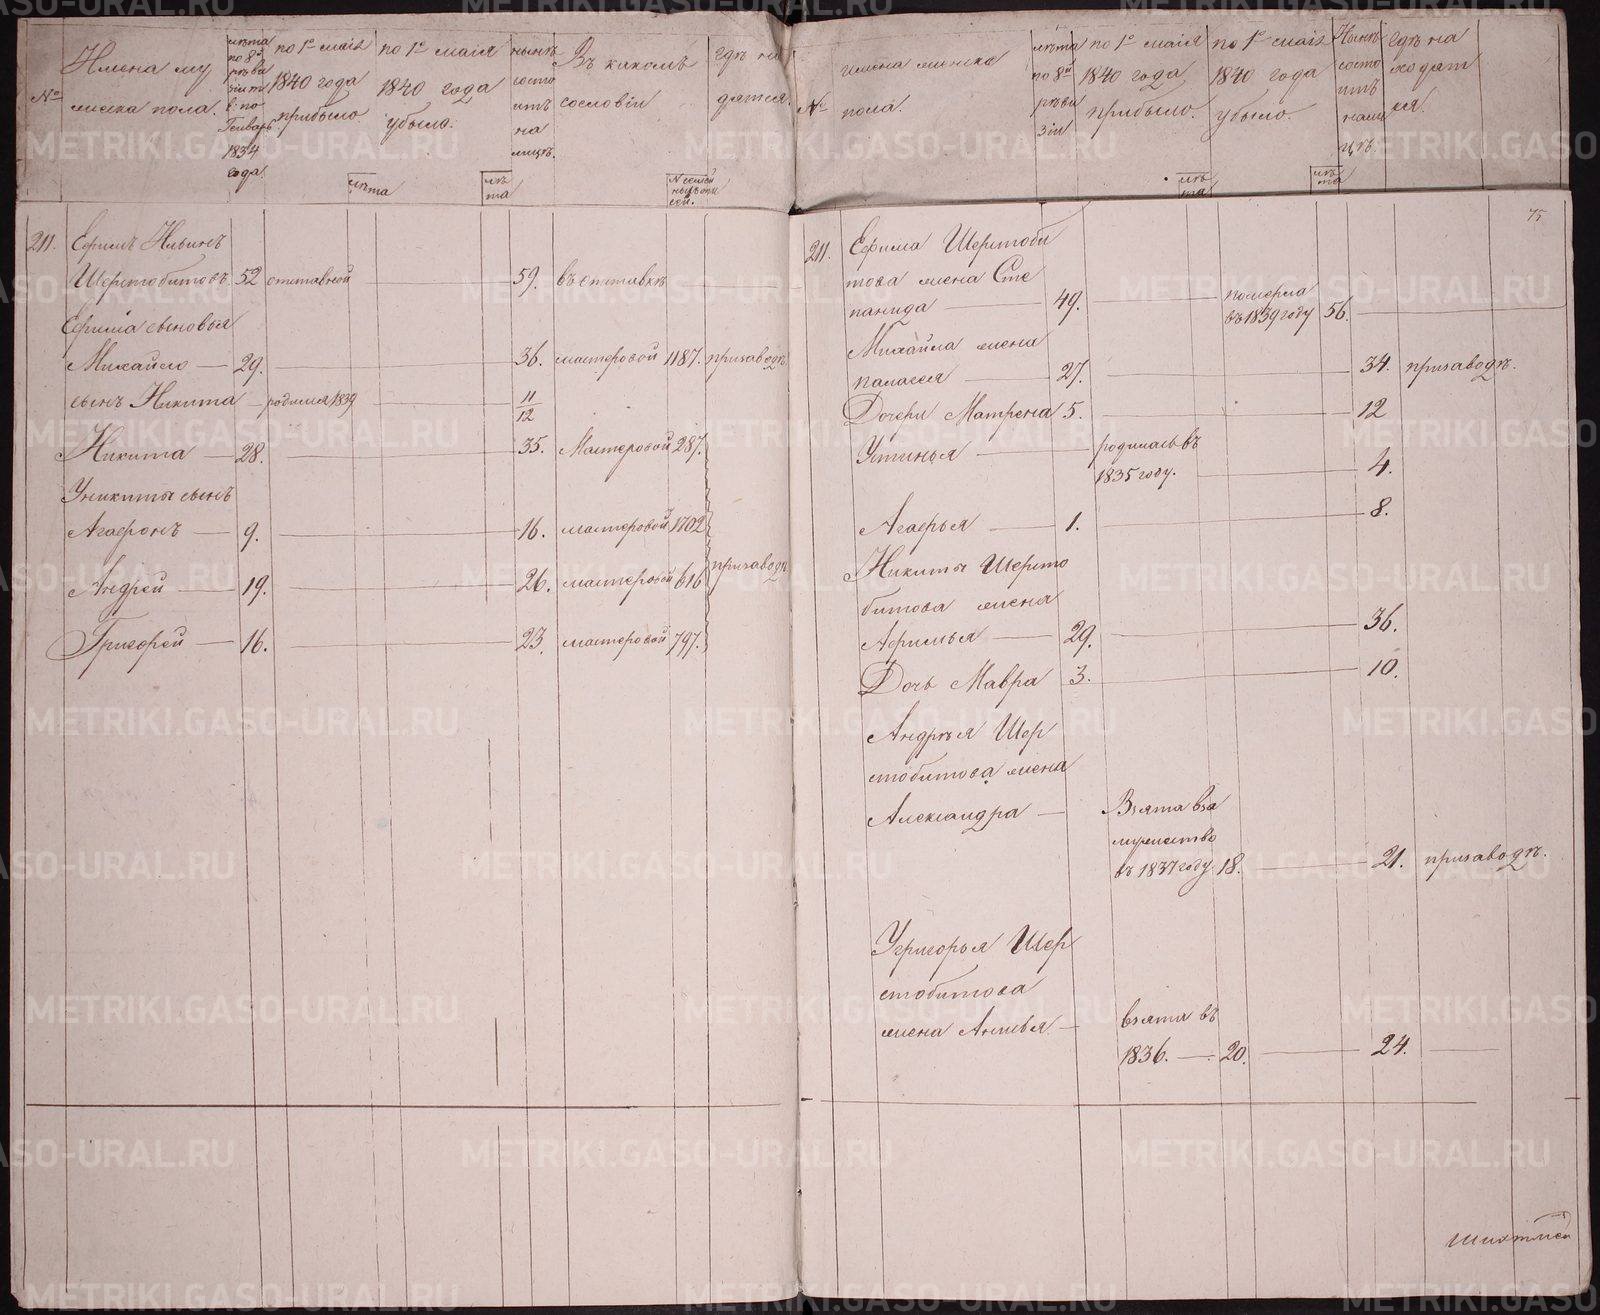 №
Имена му
жеска пола.
лѣта
по 8й
ревi
зiи
по
Генварь
1834
года.
по 1е маiя
1840 года
прибыло
лѣта
по 1е маiя
1840 года
убыло.
лѣ
та
нынѣ
состо
итъ
на
лицѣ.
Въ какомъ
сословiи
гдѣ на
дятся.
211. Ефимъ
Шерстобитовъ 52 отставной 59. въ отставкѣ
Ефима сыновья
Михайло — 29. 36. мастеровой 1187. призаводѣ
сынъ Никита — родился 1839 11/12
Никита — 28. 35. Мастеровой 287.
Уникиты сынъ
Агафонъ — 9. 16. мастеровой 1702
призаводѣ
Андрей — 19. 26. мастеровой 616
Григорей — 16. 23. мастеровой 797.
№
имена женска
пола.
лѣта
по 8й
реви
зiи
по 1е маiя
1840 года
прибыло.
лѣ
та
по 1е маiя
1840 года
убыло.
лѣ
та
Нынѣ
состо
итъ
нали
цѣ.
гдѣ на
ходят
ся.
75
211. Ефима Шерстоби
това жена Сте
панида — 49. померла
въ 1839 году 56.
Михайла жена
палагея — 27. 34. призаводѣ.
Дочери Матрена 5. 12
Устинья — родилась въ
1835 году. 4.
Агафья — 1. 8.
Никиты Шерсто
битова жена
Афимья — 29. 36.
Дочь Мавра 3. 10.
Андрѣя Шер
стобитова жена
Александра — Взята вза
мужество
въ 1837 году 18. 21. призаводѣ.
Угригорья Шер
стобитова
жена Анисья — взята въ
1836. — 20. 24.
METRIKI.GASO-URAL.RU